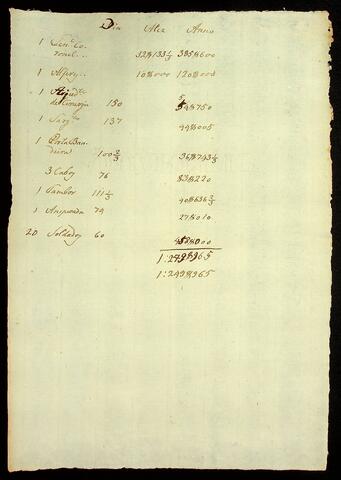 Dia Mez Anno
1 Ten.e Co-
ronel... 32$133 1/3 385$600
1 Alferes.. 10$000 120$000
1 Ajud.te
de Cirurgia 150 54$750
1 Sarg.to 137 49$005
1 Porta Ban-
deira 100 2/3 36$743 1/3
3 Cabos 76 83$220
1 Tambor 111 1/3 40$636 2/3
1 Anspeçada 74 27$010
20 Soldados 60 $000
1:249$965
1:249$965